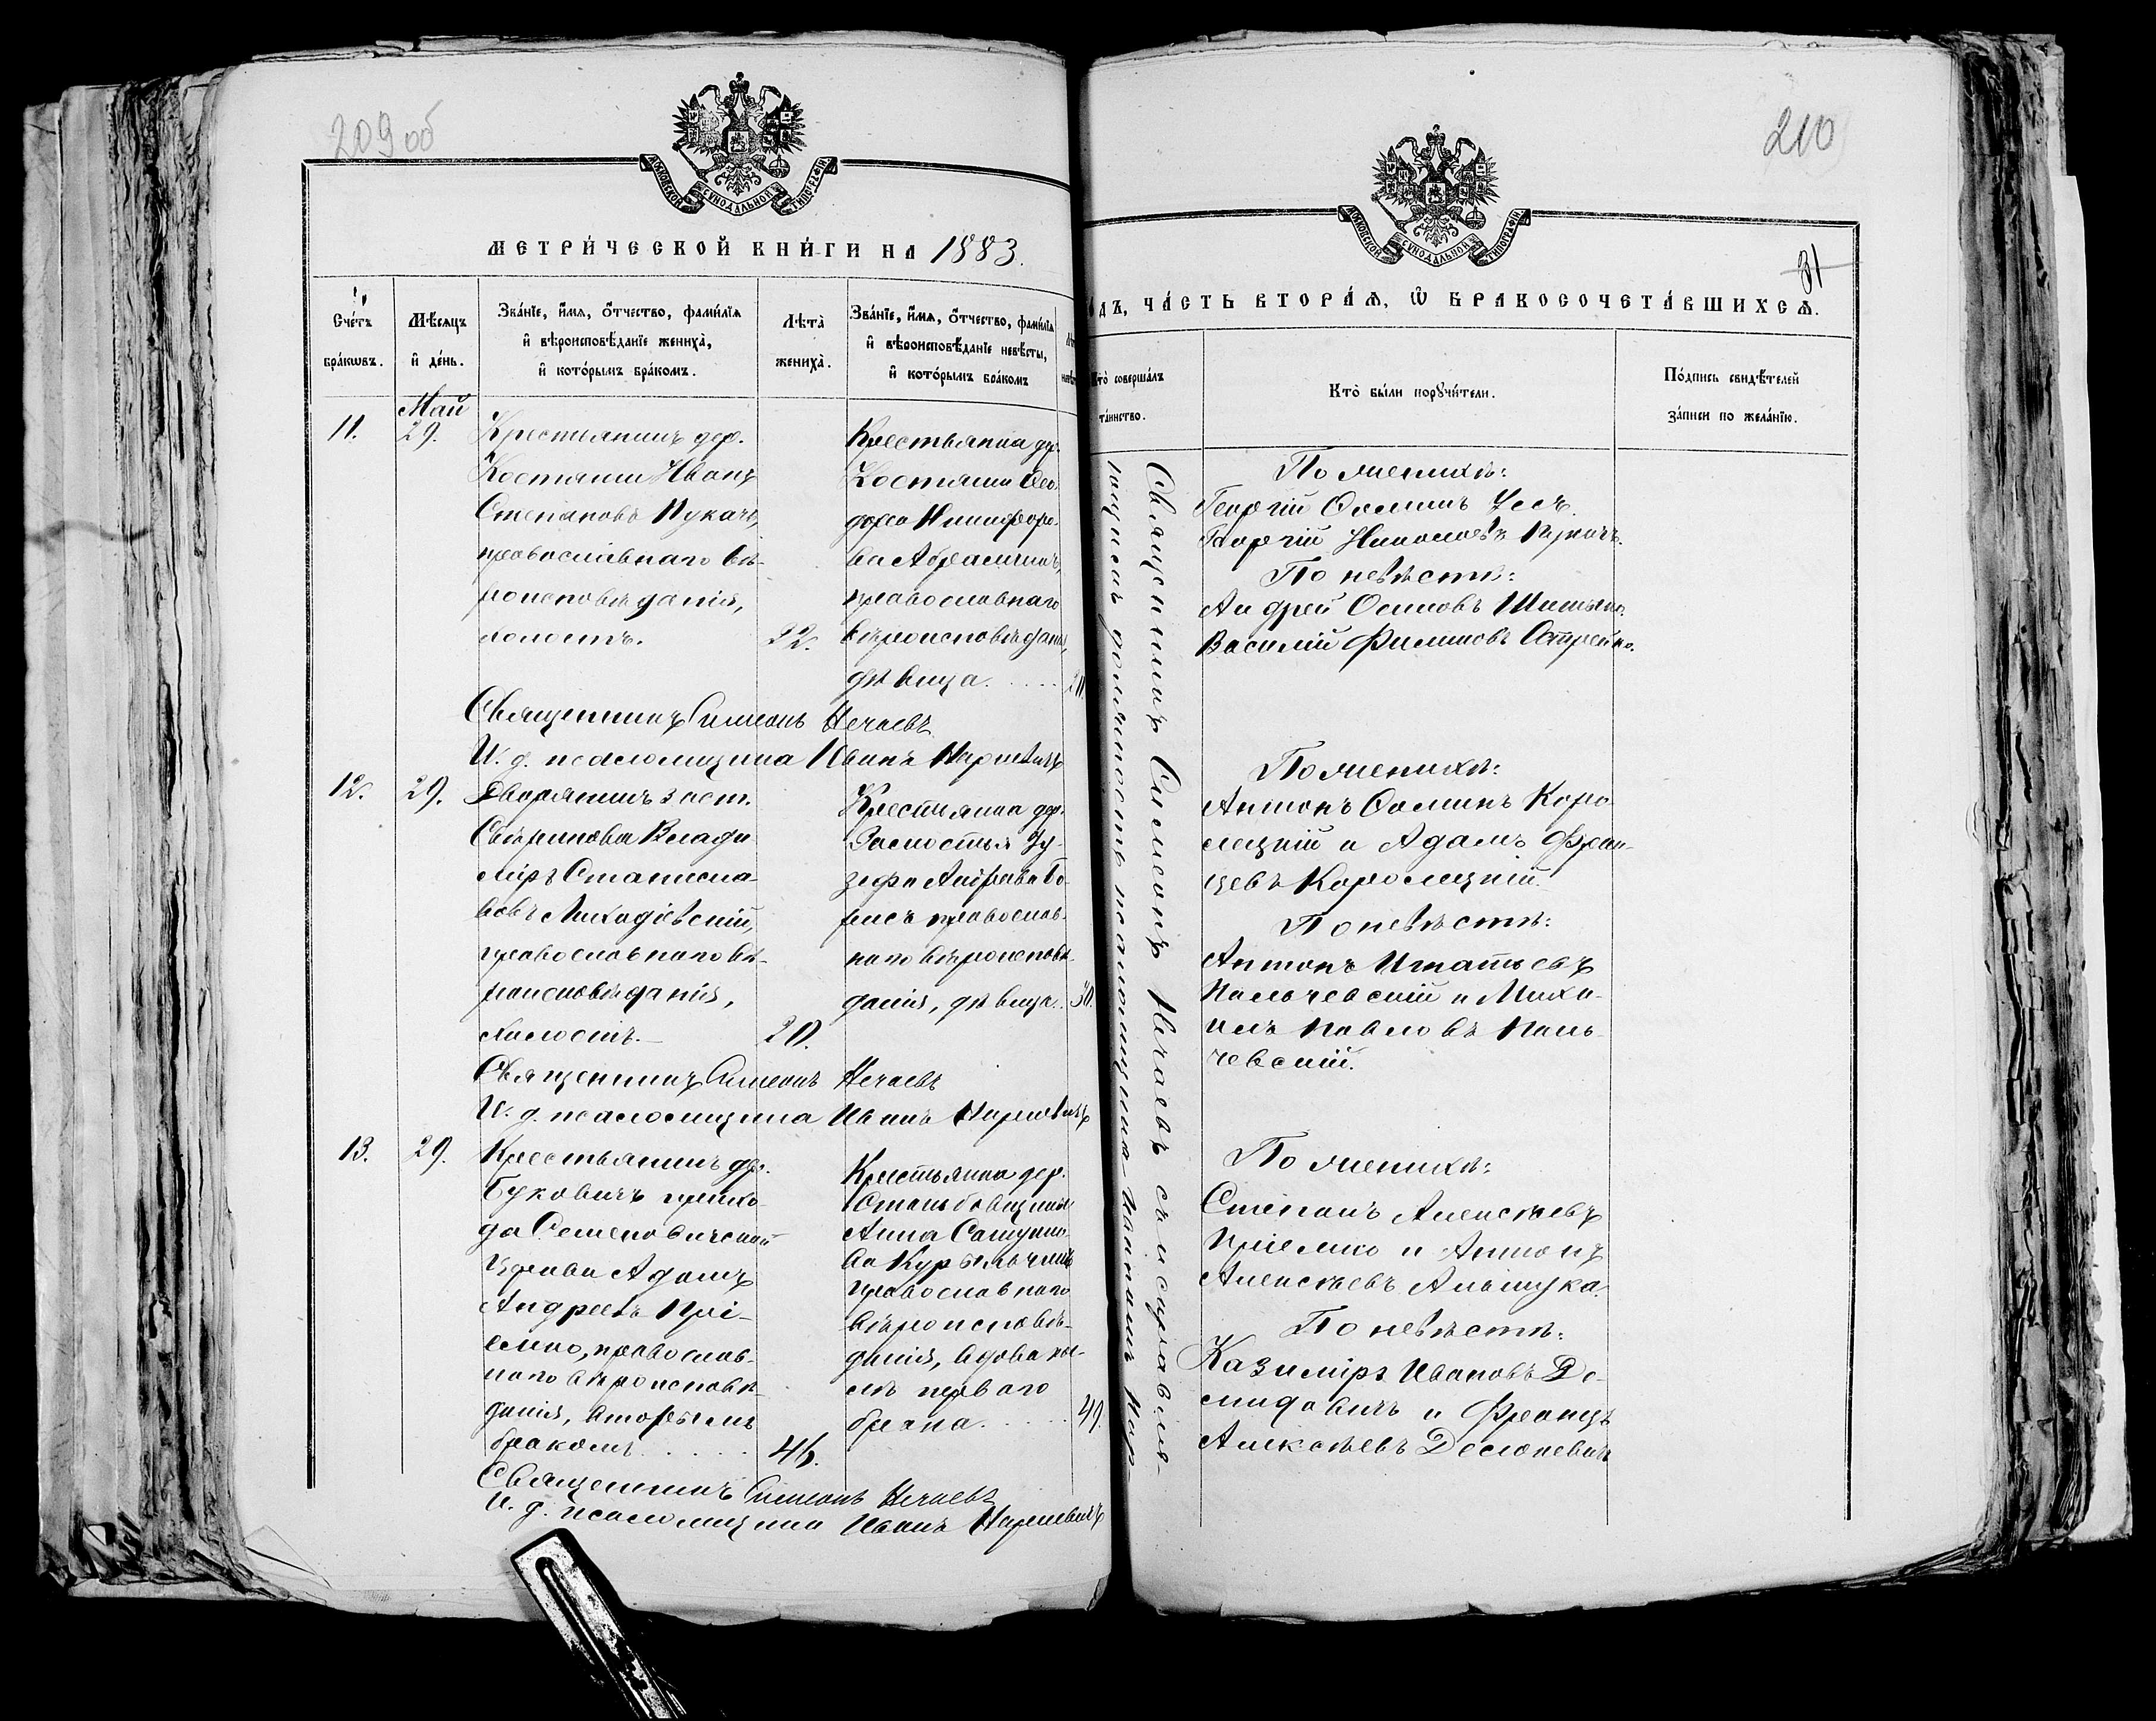 209 об
МОСКОВСКОЙ СѴНОДАЛЬНОЙ ТИПОГРАФІИ
МЕТРИ́ЧЕСКОЙ КНИ́ГИ НА 1883.
Сче́тъ бра́кѡвъ.
Мѣ́сяцъ и҆ де́нь.
Зва́нїе, и҆́мя, о҆́тчество, фами́лїя
и҆ вѣроисповѣ́данїе жениха̀,
и҆ кото́рымъ бра́комъ.
Лѣ́та̀ жениха̀.
Зва́нїе, и҆́мя, о҆́тчество, фами́лїя
и҆ вѣроисповѣ́данїе невѣ́сты,
и҆ кото́рымъ бра́комъ
Май
11.
29.
Крестьянинъ дер.
Костяши Иванъ
Степановъ Пукачъ,
православнаго вѣ-
роисповѣданія,
холостъ.
22.
Крестьянка дер.
Костяши Ѳео-
дора Никифоро-
ва
православнаго
вѣроисповѣданія,
дѣвица.
Священникъ Симеонъ Нечаевъ
И. д. псаломщика Иванъ Наркевичъ
12.
29.
Дворянинъ заст.
Влади-
міръ Станисла-
вовъ
православнаго вѣ-
роисповѣданія,
холостъ.
20.
Крестьянка дер.
Заспостья Ю-
зефа
православ-
наго вѣроисповѣ-
данія, дѣвица.
30.
Священникъ Симеонъ Нечаевъ
И. д. псаломщика Иванъ Наркевичъ
13.
29.
Крестьянинъ дер.
Буковичъ прихо-
да Семеновичской
церкви Адамъ
Андреевъ Прі-
емко, православ-
наго вѣроисповѣ-
данія, вторымъ
бракомъ
46.
Крестьянка дер.
Анна
православнаго
вѣроисповѣ-
данія, вдова по-
слѣ перваго
брака
49.
Священникъ Симеонъ Нечаевъ
И. д. псаломщика Иванъ Наркевичъ
210
МОСКОВСКОЙ СѴНОДАЛЬНОЙ ТИПОГРАФІИ
31
ОДЪ, ЧА́СТЬ ВТОРА́Ѧ, Ѿ БРАКОСОЧЕТА́ВШИХСѦ.
Кто̀ соверша́лъ та́инство.
Кто̀ бы́ли порꙋчи́тели.
По́дпись свидѣ́телей
за́писи по жела́нїю.
Священникъ Симеонъ Нечаевъ съ исправля-
ющимъ должность псаломщика Иваномъ Нар-
По женихѣ:
Георгій Ѳоминъ Усъ.
Георгій Пукачъ.
По невѣстѣ:
Андрей Осиповъ
Василій Филиповъ Астрейко.
По женихѣ:
Антонъ Ѳоминъ Коро-
лецкій и Адамъ Фран-
цевъ Королецкій.
По невѣстѣ:
Антонъ Игнатьевъ
Пальчевскій и Миха-
илъ Павловъ Паль-
чевскій.
По женихѣ:
Степанъ Алексѣевъ
Пріемко и Антонъ
Алексѣевъ
По невѣстѣ:
Казиміръ Ивановъ Де-
мидовичъ и Францъ
Алексѣевъ